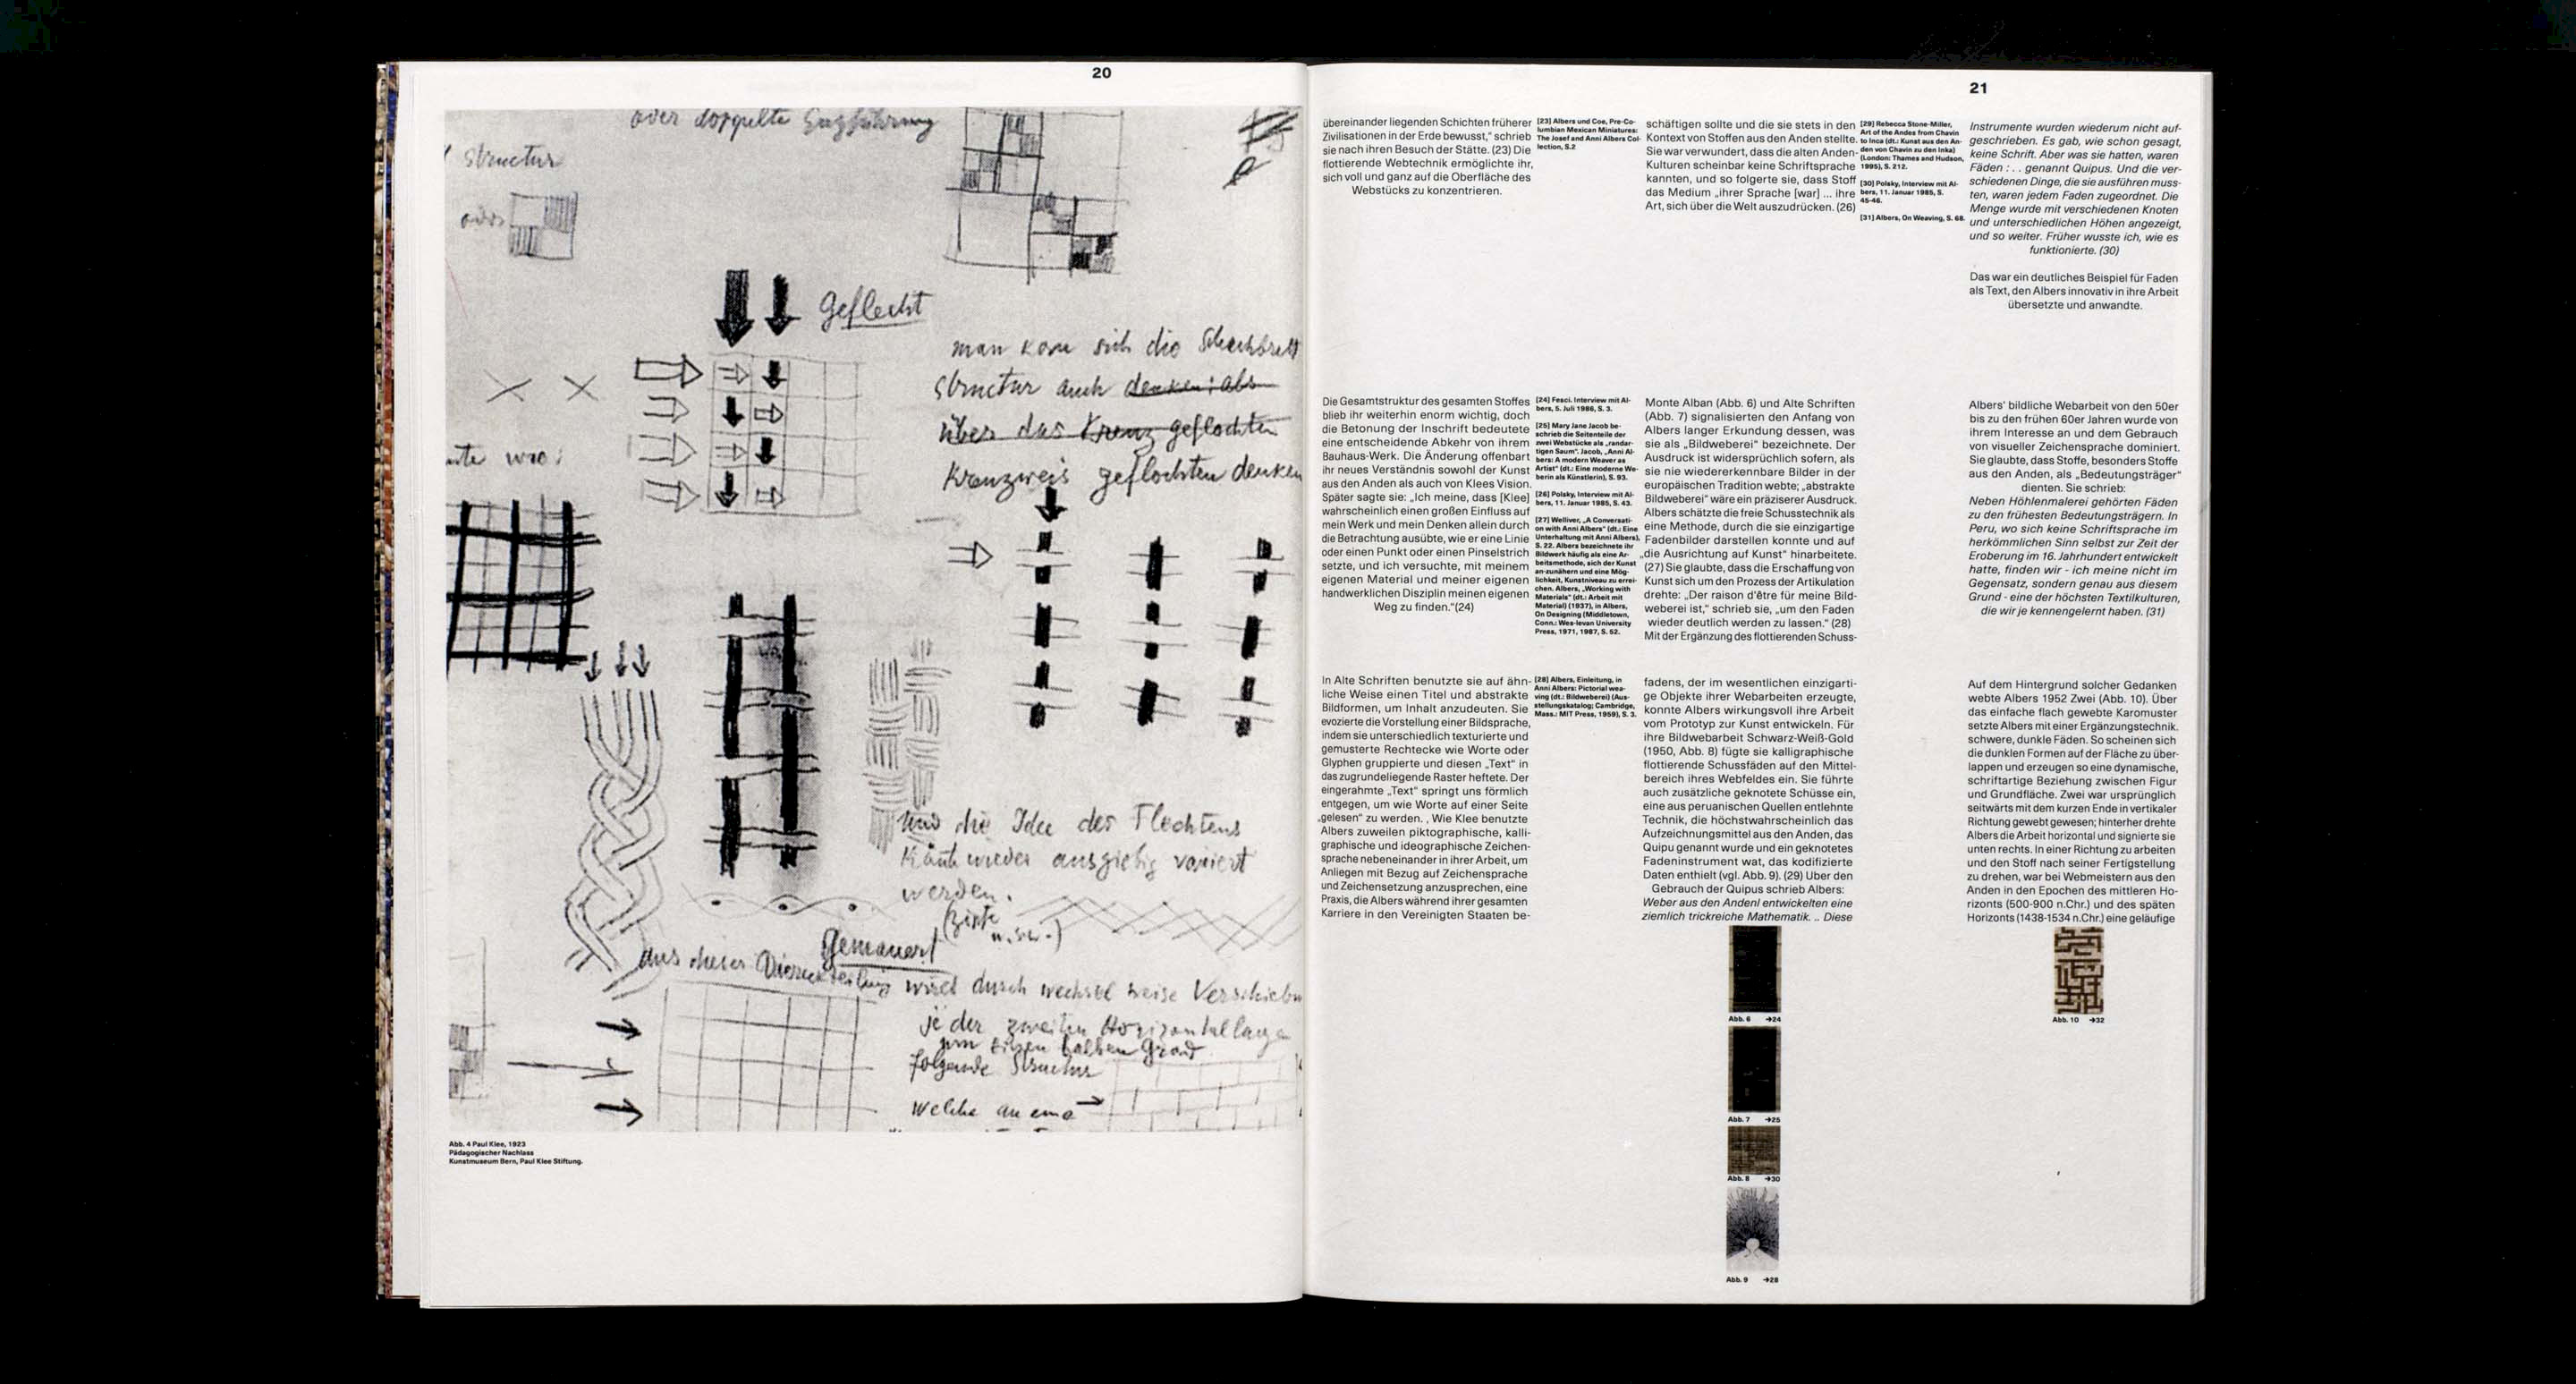 20
oder doppelte
structur
oder
Geflecht
man kann sich die Schachbrett
structur auch denken: als
über das Kreuz geflochten
Kreuzweis geflochten denken
und die Idee des Flechtens
kann wieder ausgiebig variiert
werden.
(Zöpfe
u.s.w.)
gemauert
aus dieser
wird durch wechselweise
jeder zweiten Horizontallage
um einen halben Grad
folgende Structur
welche an eine
Abb. 4 Paul Klee, 1923
Pädagogischer Nachlass
Kunstmuseum Bern, Paul Klee Stiftung.
21
übereinander liegenden Schichten früherer
Zivilisationen in der Erde bewusst,“ schrieb
sie nach ihren Besuch der Stätte. (23) Die
flottierende Webtechnik ermöglichte ihr,
sich voll und ganz auf die Oberfläche des
Webstücks zu konzentrieren.
[23] Albers und Coe, Pre-Co-
lumbian Mexican Miniatures:
The Josef and Anni Albers Col-
lection, S.2
schäftigen sollte und die sie stets in den
Kontext von Stoffen aus den Anden stellte.
Sie war verwundert, dass die alten Anden-
Kulturen scheinbar keine Schriftsprache
kannten, und so folgerte sie, dass Stoff
das Medium „ihrer Sprache [war] ... ihre
Art, sich über die Welt auszudrücken. (26)
[29] Rebecca Stone-Miller,
Art of the Andes from Chavin
to Inca (dt.: Kunst aus den An-
den von Chavin zu den Inka)
(London: Thames and Hudson,
1995), S. 212.
[30] Polsky, Interview mit Al-
bers, 11. Januar 1985, S.
45-46.
[31] Albers, On Weaving, S. 68.
Instrumente wurden wiederum nicht auf-
geschrieben. Es gab, wie schon gesagt,
keine Schrift. Aber was sie hatten, waren
Fäden : . . genannt Quipus. Und die ver-
schiedenen Dinge, die sie ausführen muss-
ten, waren jedem Faden zugeordnet. Die
Menge wurde mit verschiedenen Knoten
und unterschiedlichen Höhen angezeigt,
und so weiter. Früher wusste ich, wie es
funktionierte. (30)
Das war ein deutliches Beispiel für Faden
als Text, den Albers innovativ in ihre Arbeit
übersetzte und anwandte.
Die Gesamtstruktur des gesamten Stoffes
blieb ihr weiterhin enorm wichtig, doch
die Betonung der Inschrift bedeutete
eine entscheidende Abkehr von ihrem
Bauhaus-Werk. Die Änderung offenbart
ihr neues Verständnis sowohl der Kunst
aus den Anden als auch von Klees Vision.
Später sagte sie: „Ich meine, dass [Klee]
wahrscheinlich einen großen Einfluss auf
mein Werk und mein Denken allein durch
die Betrachtung ausübte, wie er eine Linie
oder einen Punkt oder einen Pinselstrich
setzte, und ich versuchte, mit meinem
eigenen Material und meiner eigenen
handwerklichen Disziplin meinen eigenen
Weg zu finden.“(24)
[24] Fesci. Interview mit Al-
bers, 5. Juli 1986, S. 3.
[25] Mary Jane Jacob be-
schrieb die Seitenteile der
zwei Webstücke als „randar-
tigen Saum“. Jacob, „Anni Al-
bers: A modern Weaver as
Artist“ (dt.: Eine moderne We-
berin als Künstlerin), S. 93.
[26] Polsky, Interview mit Al-
bers, 11. Januar 1985, S. 43.
[27] Welliver, „A Conversati-
on with Anni Albers“ (dt.: Eine
Unterhaltung mit Anni Albers),
S. 22. Albers bezeichnete ihr
Bildwerk häufig als eine Ar-
beitsmethode, sich der Kunst
an-zunähern und eine Mög-
lichkeit, Kunstniveau zu errei-
chen. Albers, „Working with
Materials“ (dt.: Arbeit mit
Material) (1937), in Albers,
On Designing (Middletown,
Conn.: Wes-levan University
Press, 1971, 1987, S. 52.
Monte Alban (Abb. 6) und Alte Schriften
(Abb. 7) signalisierten den Anfang von
Albers langer Erkundung dessen, was
sie als „Bildweberei“ bezeichnete. Der
Ausdruck ist widersprüchlich sofern, als
sie nie wiedererkennbare Bilder in der
europäischen Tradition webte; „abstrakte
Bildweberei“ wäre ein präziserer Ausdruck.
Albers schätzte die freie Schusstechnik als
eine Methode, durch die sie einzigartige
Fadenbilder darstellen konnte und auf
„die Ausrichtung auf Kunst“ hinarbeitete.
(27) Sie glaubte, dass die Erschaffung von
Kunst sich um den Prozess der Artikulation
drehte: „Der raison d'être für meine Bild-
weberei ist,“ schrieb sie, „um den Faden
wieder deutlich werden zu lassen.“ (28)
Mit der Ergänzung des flottierenden Schuss-
Albers' bildliche Webarbeit von den 50er
bis zu den frühen 60er Jahren wurde von
ihrem Interesse an und dem Gebrauch
von visueller Zeichensprache dominiert.
Sie glaubte, dass Stoffe, besonders Stoffe
aus den Anden, als „Bedeutungsträger“
dienten. Sie schrieb:
Neben Höhlenmalerei gehörten Fäden
zu den frühesten Bedeutungsträgern. In
Peru, wo sich keine Schriftsprache im
herkömmlichen Sinn selbst zur Zeit der
Eroberung im 16. Jahrhundert entwickelt
hatte, finden wir - ich meine nicht im
Gegensatz, sondern genau aus diesem
Grund - eine der höchsten Textilkulturen,
die wir je kennengelernt haben. (31)
In Alte Schriften benutzte sie auf ähn-
liche Weise einen Titel und abstrakte
Bildformen, um Inhalt anzudeuten. Sie
evozierte die Vorstellung einer Bildsprache,
indem sie unterschiedlich texturierte und
gemusterte Rechtecke wie Worte oder
Glyphen gruppierte und diesen „Text“ in
das zugrundeliegende Raster heftete. Der
eingerahmte „Text“ springt uns förmlich
entgegen, um wie Worte auf einer Seite
„gelesen“ zu werden. . Wie Klee benutzte
Albers zuweilen piktographische, kalli-
graphische und ideographische Zeichen-
sprache nebeneinander in ihrer Arbeit, um
Anliegen mit Bezug auf Zeichensprache
und Zeichensetzung anzusprechen, eine
Praxis, die Albers während ihrer gesamten
Karriere in den Vereinigten Staaten be-
[28] Albers, Einleitung, in
Anni Albers: Pictorial wea-
ving (dt.: Bildweberei) (Aus-
stellungskatalog; Cambridge,
Mass.: MIT Press, 1959), S. 3.
fadens, der im wesentlichen einzigarti-
ge Objekte ihrer Webarbeiten erzeugte,
konnte Albers wirkungsvoll ihre Arbeit
vom Prototyp zur Kunst entwickeln. Für
ihre Bildwebarbeit Schwarz-Weiß-Gold
(1950, Abb. 8) fügte sie kalligraphische
flottierende Schussfäden auf den Mittel-
bereich ihres Webfeldes ein. Sie führte
auch zusätzliche geknotete Schüsse ein,
eine aus peruanischen Quellen entlehnte
Technik, die höchstwahrscheinlich das
Aufzeichnungsmittel aus den Anden, das
Quipu genannt wurde und ein geknotetes
Fadeninstrument wat, das kodifizierte
Daten enthielt (vgl. Abb. 9). (29) Über den
Gebrauch der Quipus schrieb Albers:
Weber aus den Andenl entwickelten eine
ziemlich trickreiche Mathematik. .. Diese
Auf dem Hintergrund solcher Gedanken
webte Albers 1952 Zwei (Abb. 10). Über
das einfache flach gewebte Karomuster
setzte Albers mit einer Ergänzungstechnik.
schwere, dunkle Fäden. So scheinen sich
die dunklen Formen auf der Fläche zu über-
lappen und erzeugen so eine dynamische,
schriftartige Beziehung zwischen Figur
und Grundfläche. Zwei war ursprünglich
seitwärts mit dem kurzen Ende in vertikaler
Richtung gewebt gewesen; hinterher drehte
Albers die Arbeit horizontal und signierte sie
unten rechts. In einer Richtung zu arbeiten
und den Stoff nach seiner Fertigstellung
zu drehen, war bei Webmeistern aus den
Anden in den Epochen des mittleren Ho-
rizonts (500-900 n.Chr.) und des späten
Horizonts (1438-1534 n.Chr.) eine geläufige
Abb. 6 →24
Abb. 7 →25
Abb. 8 →30
Abb. 9 →28
Abb. 10 →32